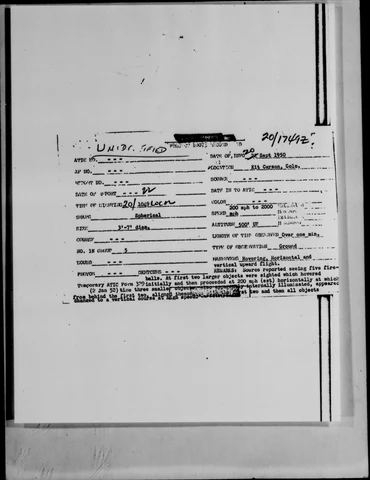 UNIDENTIFIED
20/1749Z?
ATIC NO. - - -
DATE OF INFO 20 Sept 1950
AF NO. - - -
LOCATION Kit Carson, Colo.
REPORT NO. - - -
SOURCE - - -
DATE OF REPORT - - -
DATE IN TO ATIC - - -
TIME OF SIGHTING 20/
COLOR - - -
SHAPE Spherical
SPEED 200 mph to 2000 mph
SIZE 3'-7' diam.
ALTITUDE 500' UP
COURSE - - -
LENGTH OF TIME OBSERVED Over one min.
NO. IN GROUP 5
TYPE OF OBSERVATION Ground
SOUND - - -
MANEUVERS Hovering, Horizontal and vertical upward flight.
PHOTOS - - - SKETCHES - - -
REMARKS: Source reported seeing five fireballs. At first two larger objects were sighted which hovered
Temporary ATIC Form 329 initially and then proceeded at 200 mph (est) horizontally at which
(2 Jan 52) time three smaller objects internally illuminated, appeared
from behind the first two, the first two and then all objects
changed to a vertical course at high speed